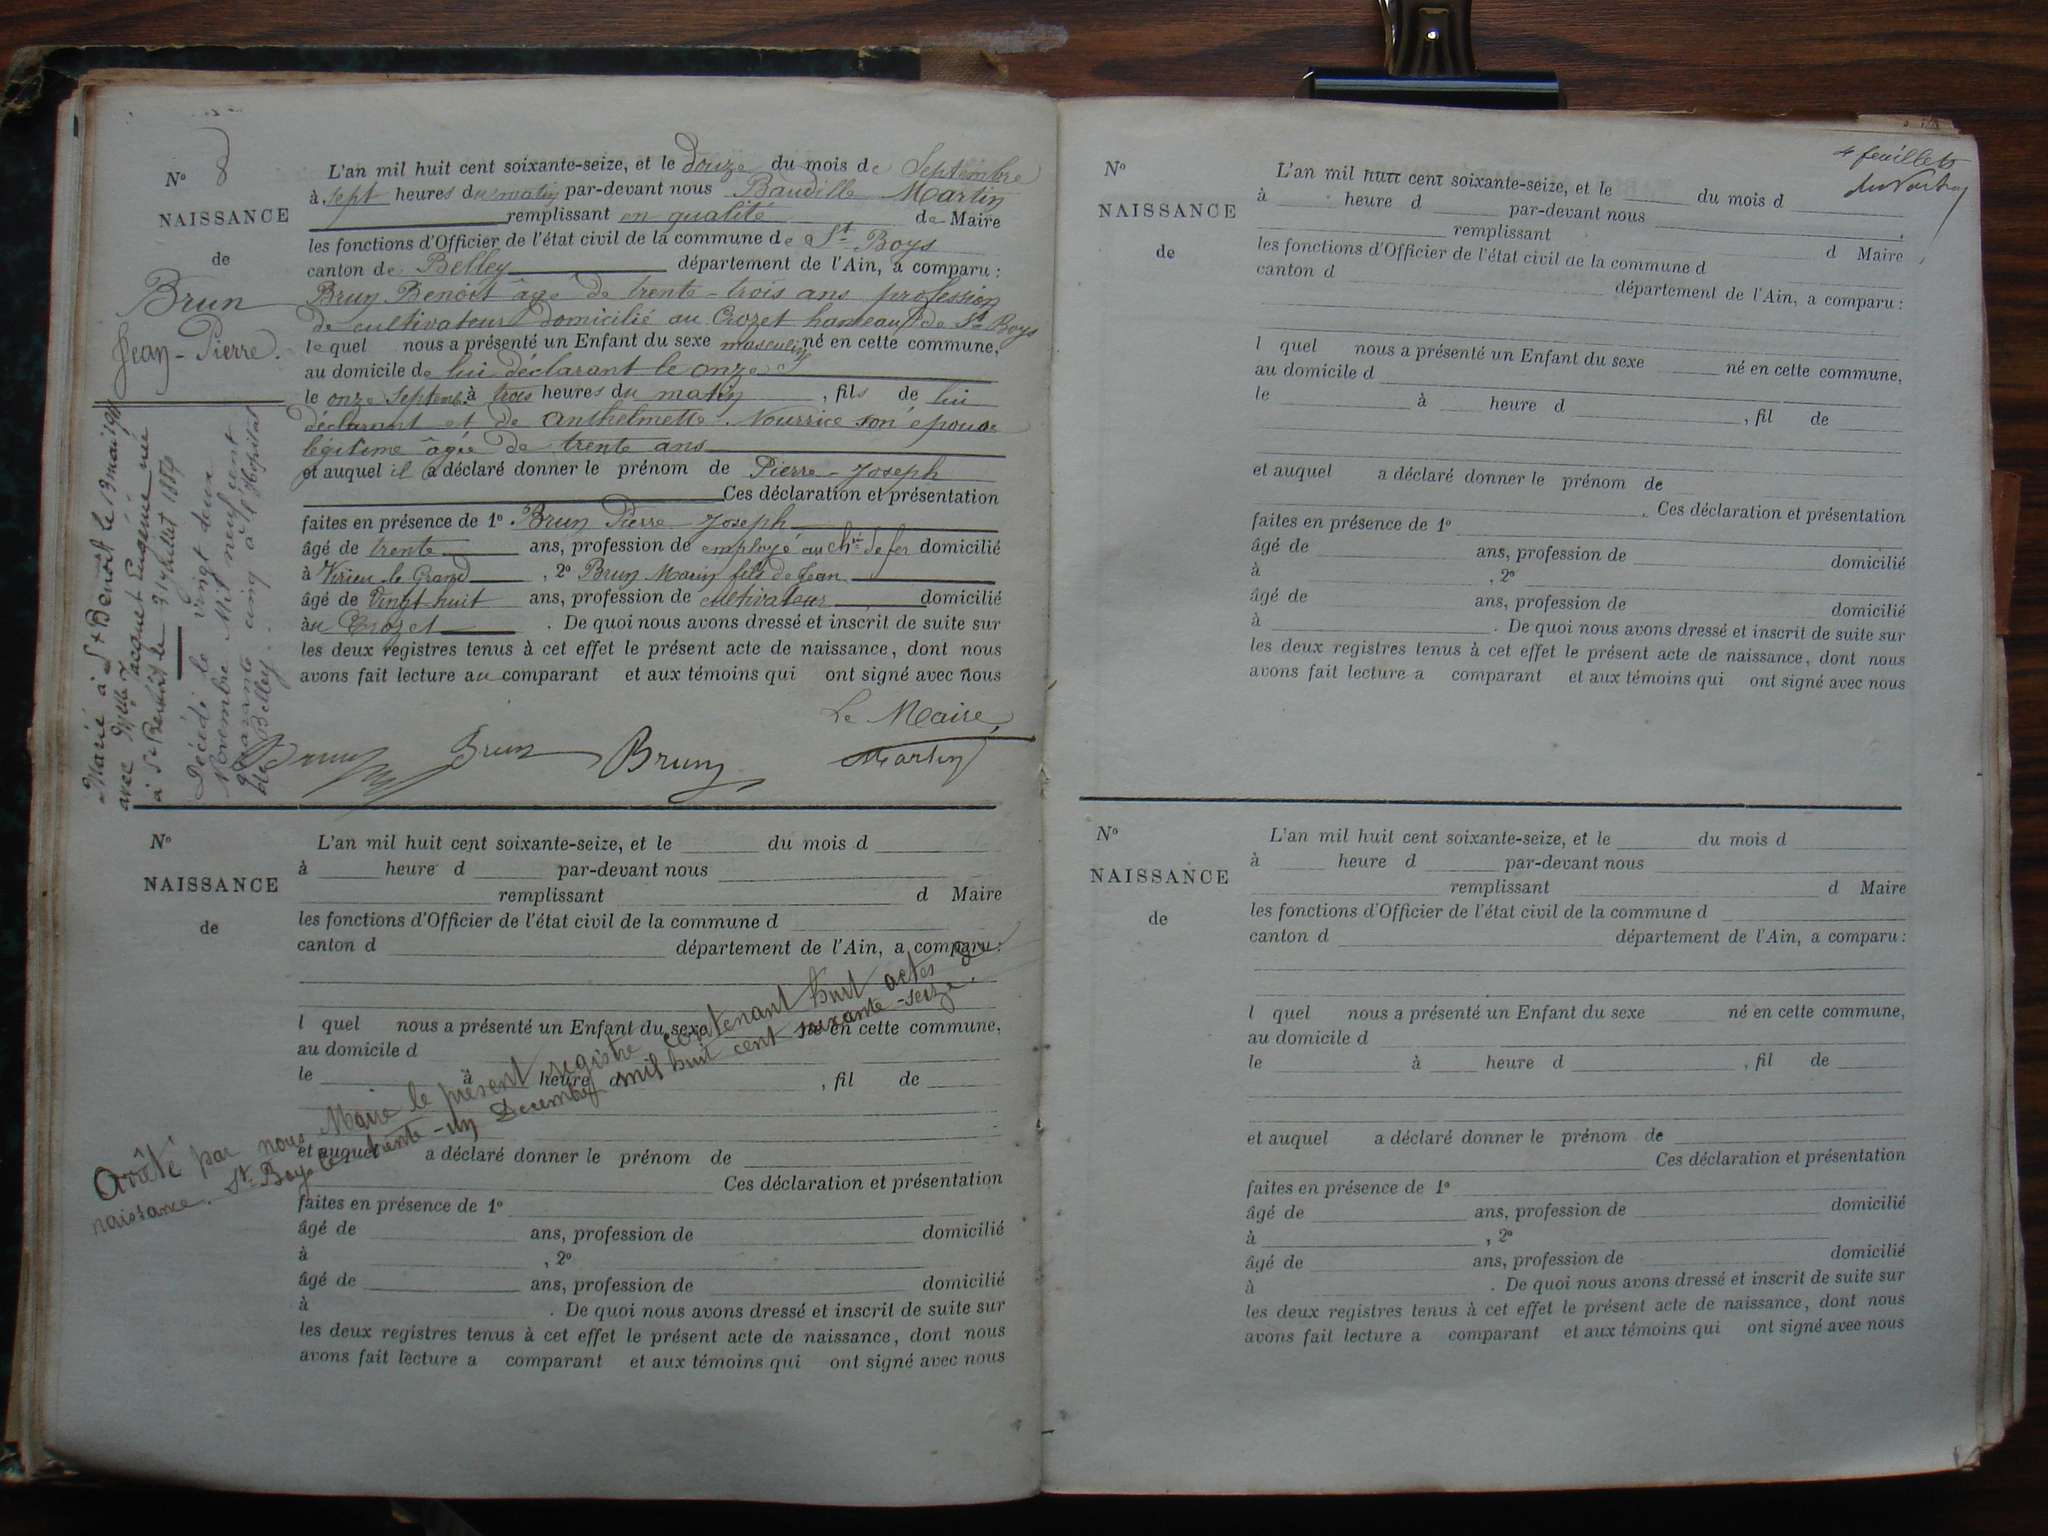 N° 8
NAISSANCE
de
Brun
Jean-Pierre.
Marié à St Benoit le 13 mai 19
avec Mlle Jacquet Eugénie née
à St Benoit le 21 juillet 1884
Décédé le vingt deux
Novembre Mil neuf cent
quarante cinq à l'Hopital
de Belley.
L'an mil huit cent soixante-seize, et le douze du mois de Septembre
à sept heures du matin par-devant nous Baudille Martin
remplissant en qualité de Maire
les fonctions d'Officier de l'état civil de la commune de St Boys
canton de Belley département de l'Ain, a comparu :
Brun Benoit âgé de trente-trois ans profession
de cultivateur domicilié au Crozet hameau de St Boys
lequel nous a présenté un Enfant du sexe masculin né en cette commune,
au domicile de lui déclarant le onze
le onze Septemb. à trois heures du matin, fils de lui
déclarant et de Anthelmette Nourrice son épouse
légitime âgée de trente ans
et auquel il a déclaré donner le prénom de Pierre-Joseph
Ces déclaration et présentation
faites en présence de 1° Brun Pierre-Joseph
âgé de trente ans, profession de employé au Ch. de fer domicilié
à Virieu le Grand, 2° Brun Marin fils de Jean
âgé de Vingt huit ans, profession de cultivateur domicilié
au Crozet. De quoi nous avons dressé et inscrit de suite sur
les deux registres tenus à cet effet le présent acte de naissance, dont nous
avons fait lecture au comparant et aux témoins qui ont signé avec nous
Le Maire,
Brun Brun Brun Martin
N°
NAISSANCE
de
L'an mil huit cent soixante-seize, et le du mois d
à heure d par-devant nous
remplissant d Maire
les fonctions d'Officier de l'état civil de la commune d
canton d département de l'Ain, a comparu :
l quel nous a présenté un Enfant du sexe né en cette commune,
au domicile d
le à heure d , fil de
et auquel a déclaré donner le prénom de
Ces déclaration et présentation
faites en présence de 1°
âgé de ans, profession de domicilié
à , 2°
âgé de ans, profession de domicilié
à . De quoi nous avons dressé et inscrit de suite sur
les deux registres tenus à cet effet le présent acte de naissance, dont nous
avons fait lecture a comparant et aux témoins qui ont signé avec nous
Arrêté par nous Maire le présent registre contenant huit actes de
naissance. St Boys le trente-un Decembre mil huit cent soixante-seize.
4 feuillets
N°
NAISSANCE
de
L'an mil huit cent soixante-seize, et le du mois d
à heure d par-devant nous
remplissant d Maire
les fonctions d'Officier de l'état civil de la commune d
canton d département de l'Ain, a comparu :
l quel nous a présenté un Enfant du sexe né en cette commune,
au domicile d
le à heure d , fil de
et auquel a déclaré donner le prénom de
. Ces déclaration et présentation
faites en présence de 1°
âgé de ans, profession de domicilié
à , 2°
âgé de ans, profession de domicilié
à . De quoi nous avons dressé et inscrit de suite sur
les deux registres tenus à cet effet le présent acte de naissance, dont nous
avons fait lecture a comparant et aux témoins qui ont signé avec nous
N°
NAISSANCE
de
L'an mil huit cent soixante-seize, et le du mois d
à heure d par-devant nous
remplissant d Maire
les fonctions d'Officier de l'état civil de la commune d
canton d département de l'Ain, a comparu :
l quel nous a présenté un Enfant du sexe né en cette commune,
au domicile d
le à heure d , fil de
et auquel a déclaré donner le prénom de
Ces déclaration et présentation
faites en présence de 1°
âgé de ans, profession de domicilié
à , 2°
âgé de ans, profession de domicilié
à . De quoi nous avons dressé et inscrit de suite sur
les deux registres tenus à cet effet le présent acte de naissance, dont nous
avons fait lecture a comparant et aux témoins qui ont signé avec nous